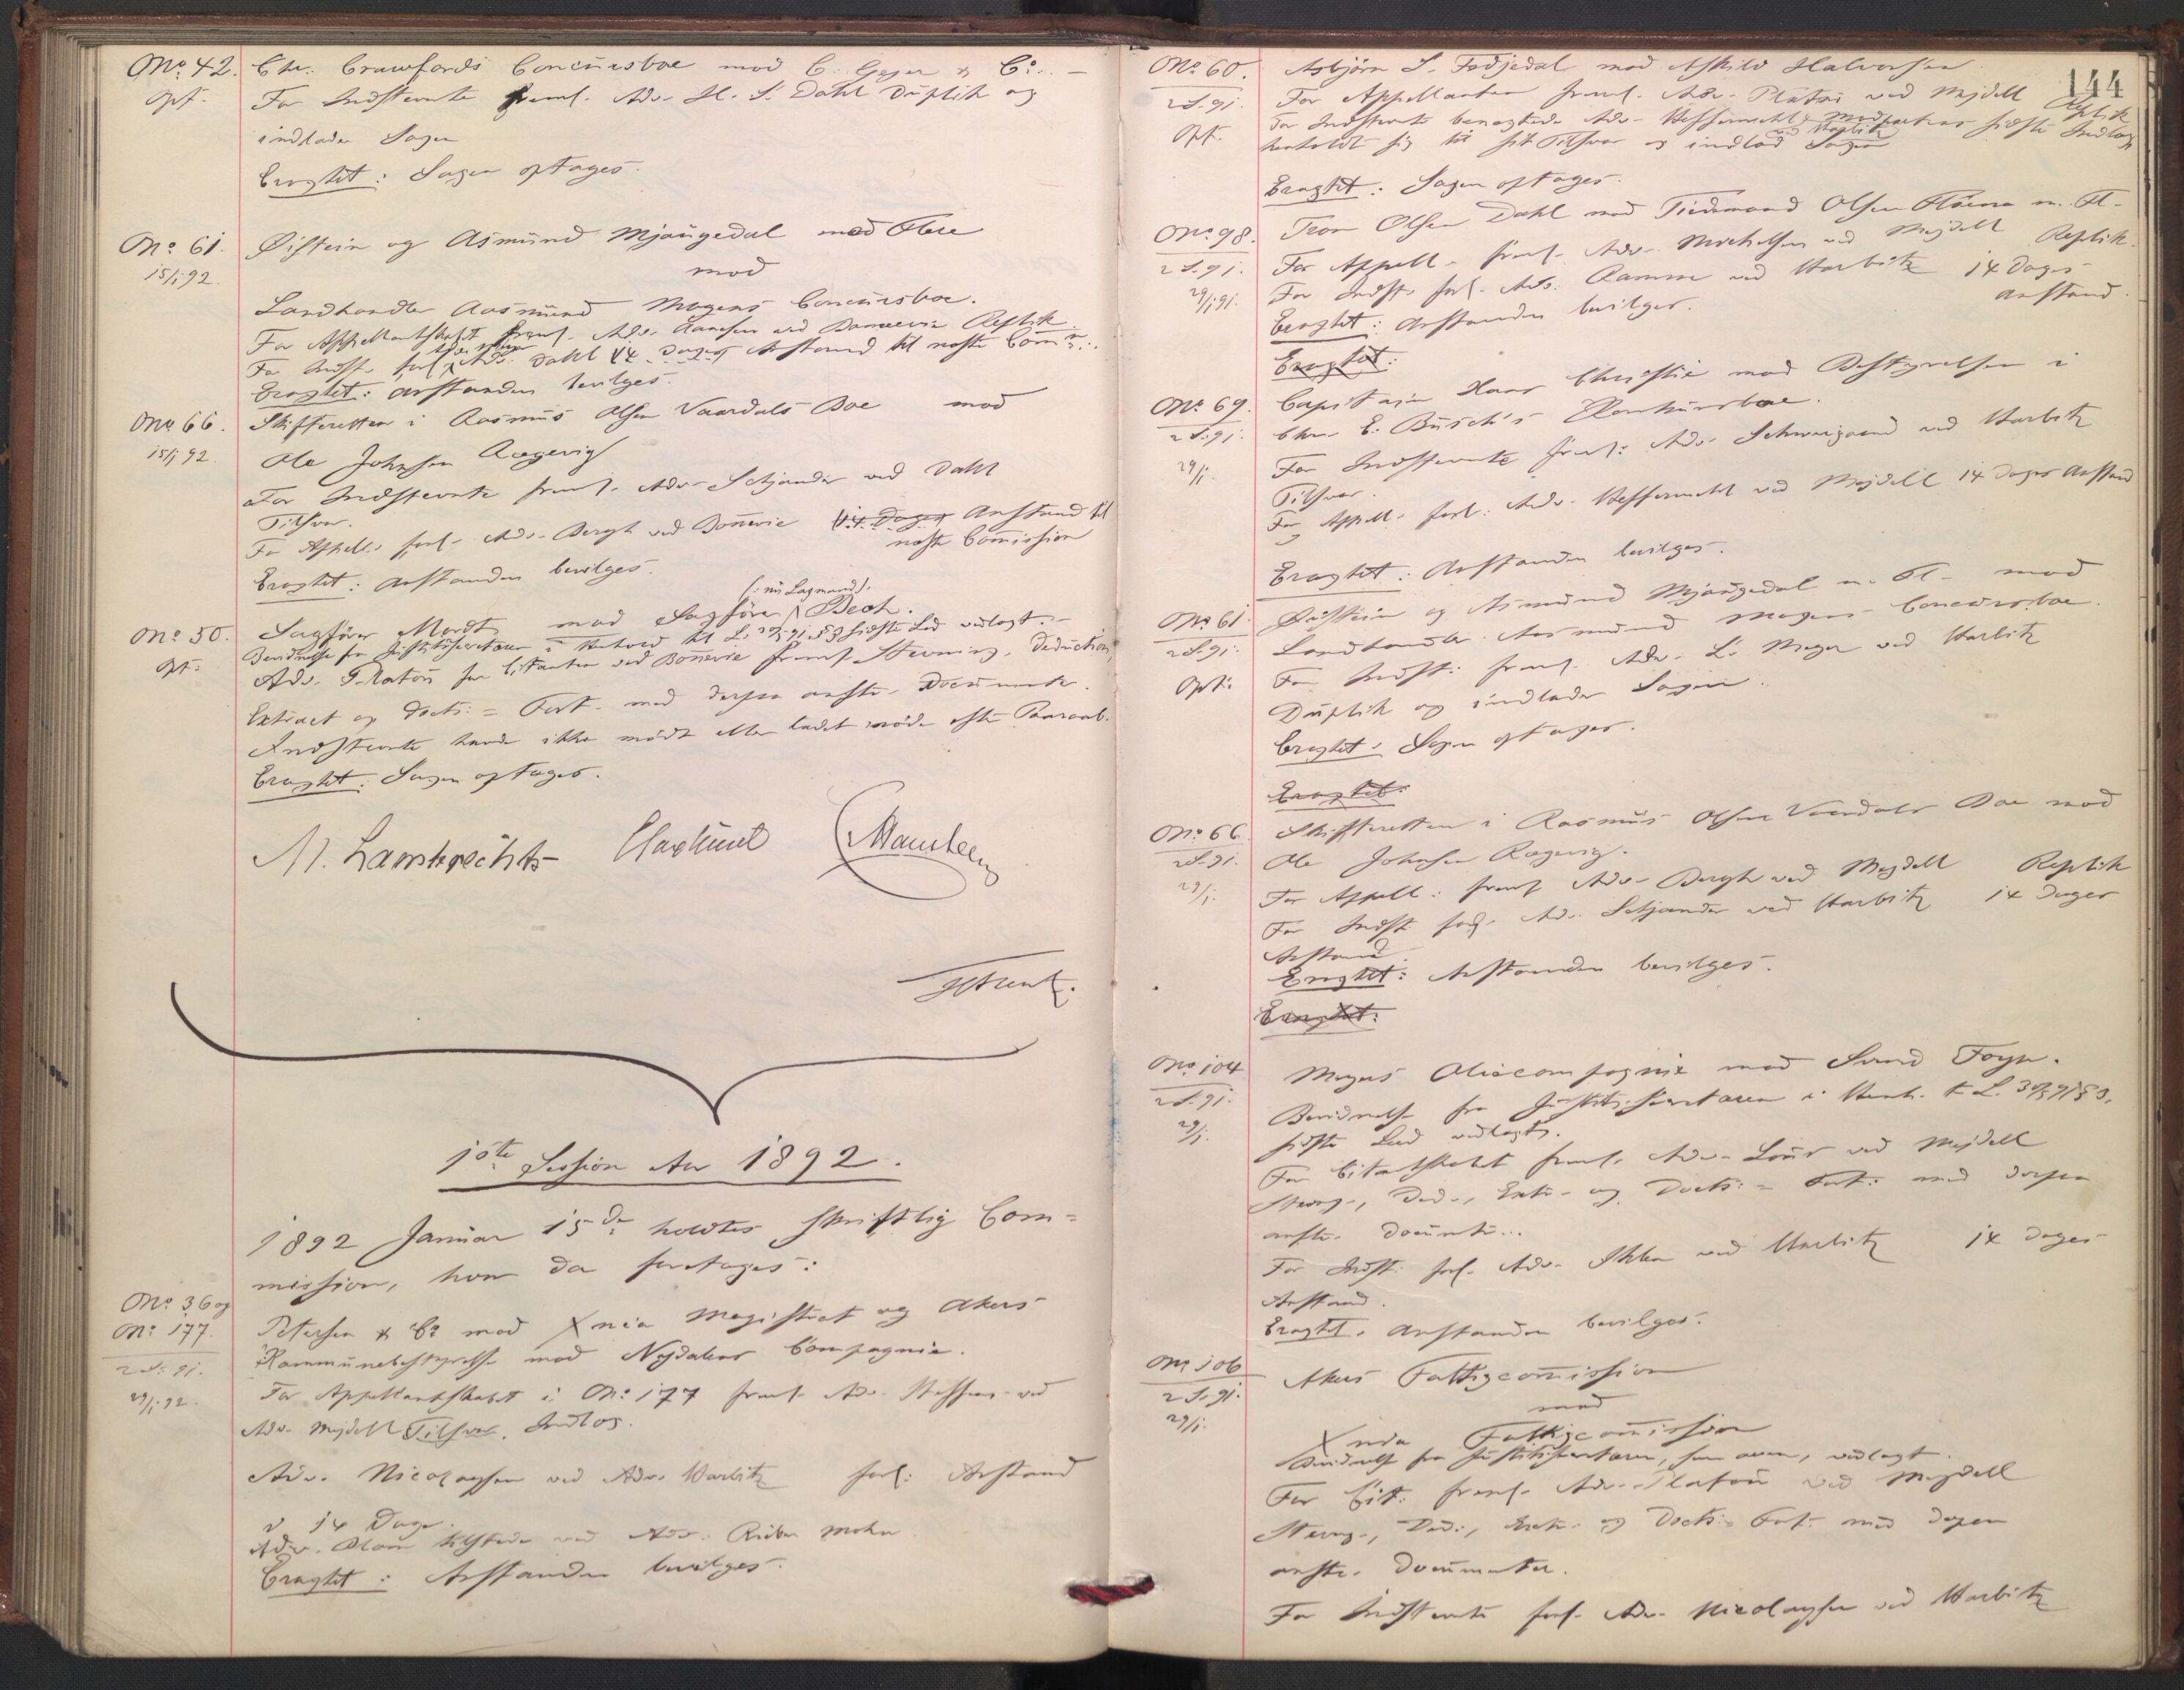 No. 42. Chr. Crawfords Concursboe mod C. Geyer & Co. –
Opt. For Indstevnte freml. Adv. H. S. Dahl Duplik og
indlader Sagen
Eragtet: Sagen optages.
No. 61. Øistein og Asmund Mjaugedal med Flere
15/1 92. mod
Landhandler Aasmund Mogens Concursboe.
For Appellantskabet freml. Adv. ved Bonnevie Replik
For Indst. forl. Adv. Dahl 14 Dages Anstand til næste Comm.
Eragtet: Anstanden bevilges.
No. 66. Skifteretten i Rasmus Olsen Vaardals Boe mod
15/1 92 Ole Johnsen Rægevig
For Indstevnte freml. Adv. Setjander ved Dahl
Tilsvar.
For Appell. forl. Adv. Bergh ved Bonnevie 14 Dages Anstand til
næste Commission
Eragtet: Anstanden bevilges.
(: nu Lagmand).
No. 50. Sagfører Mordt mod Sagfører Bech.
Opt. Bevidnelse fra Justitssecretæren i Henhold til L. § 3 sidste Led vedlagt.
Adv. Platou for Citanten ved Bonnevie freml. Stevning, Deduction,
Extract og Docts. = Fort. med derpaa anfte. Documenter.
Indstevnte havde ikke mødt eller ladet møde efter Paaraab.
Eragtet: Sagen optages.
M. Lambrechts
1ste Session Aar 1892.
1892 Januar 15de holdtes skriftlig Com=
mission, hvor da foretages:
No. 36 og
No. 177. Petersen & Co mod Xnia Magistrat og Akers
2 S. 91. Kommunebestyrelse mod Nydalens Compagnie.
29/1 92. For Appellantskabet i No. 177 freml. Adv. Steffens ved
Adv. Mejdell Tilsvar, Indlæg.
Adv. Nicolaysen ved Adv. Harbitz forl. Anstand
i 14 Dage.
Adv. tilstede ved Adv. Rieber Mohn
Eragtet: Anstanden bevilges.
144
No. 60. Asbjørn S. Fedjedal mod Askild Halvorsen
2 S. 91. For Appellanten freml. Adv. Platou ved Mejdell Replik
Opt. For Indstevnte benegtede Adv. Hesselberg ved Harbitz Modpartens sidste Indlæg
henholdt sig til sit Tilsvar og indlod Sagen
Eragtet: Sagen optages.
No. 98. Olsen Dahl mod Tidemand Olsen m. Fl.
2 S. 91. For Appell. freml. Adv. Michelsen ved Mejdell Replik.
29/1 91. For Indst. forl. Adv. Ramm ved Harbitz 14 Dages
Anstand.
Eragtet: Anstanden bevilges.
Eragtet:
No. 69. Capitain Haar Christie mod Bestyrelsen i
2 S. 91. Chr. E. Busch's Konkursboe.
29/1. For Indstevnte freml. Adv. Schweigaard ved Harbitz
Tilsvar.
For Appell. forl. Adv. ved Mejdell 14 Dages Anstand
Eragtet: Anstanden bevilges.
No. 61. Øistein og Asmund Mjaugedal m. Fl. mod
2 S. 91. Landhandler Aasmund Mogens Concursboe.
Opt. For Indst. freml. Adv. L. Meyer ved Harbitz
Duplik og indlader Sagen.
Eragtet: Sagen optages.
Eragtet:
No. 66. Skifteretten i Rasmus Olsen Vaardals Boe mod
2 S. 91. Ole Johnsen Rægevig.
29/1. For Appell. freml. Adv. Bergh ved Mejdell Replik
For Indst. forl. Adv. Setjander ved Harbitz 14 Dages
Anstand.
Eragtet: Anstanden bevilges.
Eragtet:
No. 104 Magnus Oliecompagnie mod Svend Foyn.
2 S. 91. Bevidnelse fra Justitssecretæren i Henh. t. L. § 3,
29/1. sidste Led vedlagt.
For Citantskabet freml. Adv. Lous ved Mejdell
Stevng., Ded., Extr. og Docts. = Fort. med derpaa
anfte. Documenter.
For Indst. forl. Adv. ved Harbitz 14 Dages
Anstand.
Eragtet: Anstanden bevilges.
No. 106 Akers Fattigcommission
2 S. 91. mod
29/1. Xnia Fattigcommission
Bevidnelse fra Justitssecretæren, som oven, vedlagt.
For Cit. freml. Adv. Platou ved Mejdell
Stevng., Ded., Extr. og Docts. = Fort. med derpaa
anfte. Documenter.
For Indstevnte forl. Adv. Nicolaysen ved Harbitz